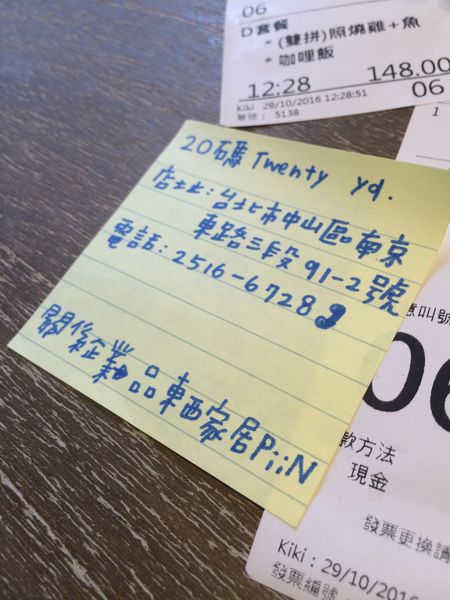 06
D套餐
* (雙拼)照燒雞+魚
* 咖哩飯
148.00
12:28
06
Kiki 29/10/2016 12:28:51
單號: 5138
1
20礴 Twenty yd.
店址:台北市中山區南京
車路三段91-2號
電話:2516-6728
關係企業品東西家居PiiN
意叫號
06
款方法
現金
發票更換請
Kiki : 29/10/2016
發票編號